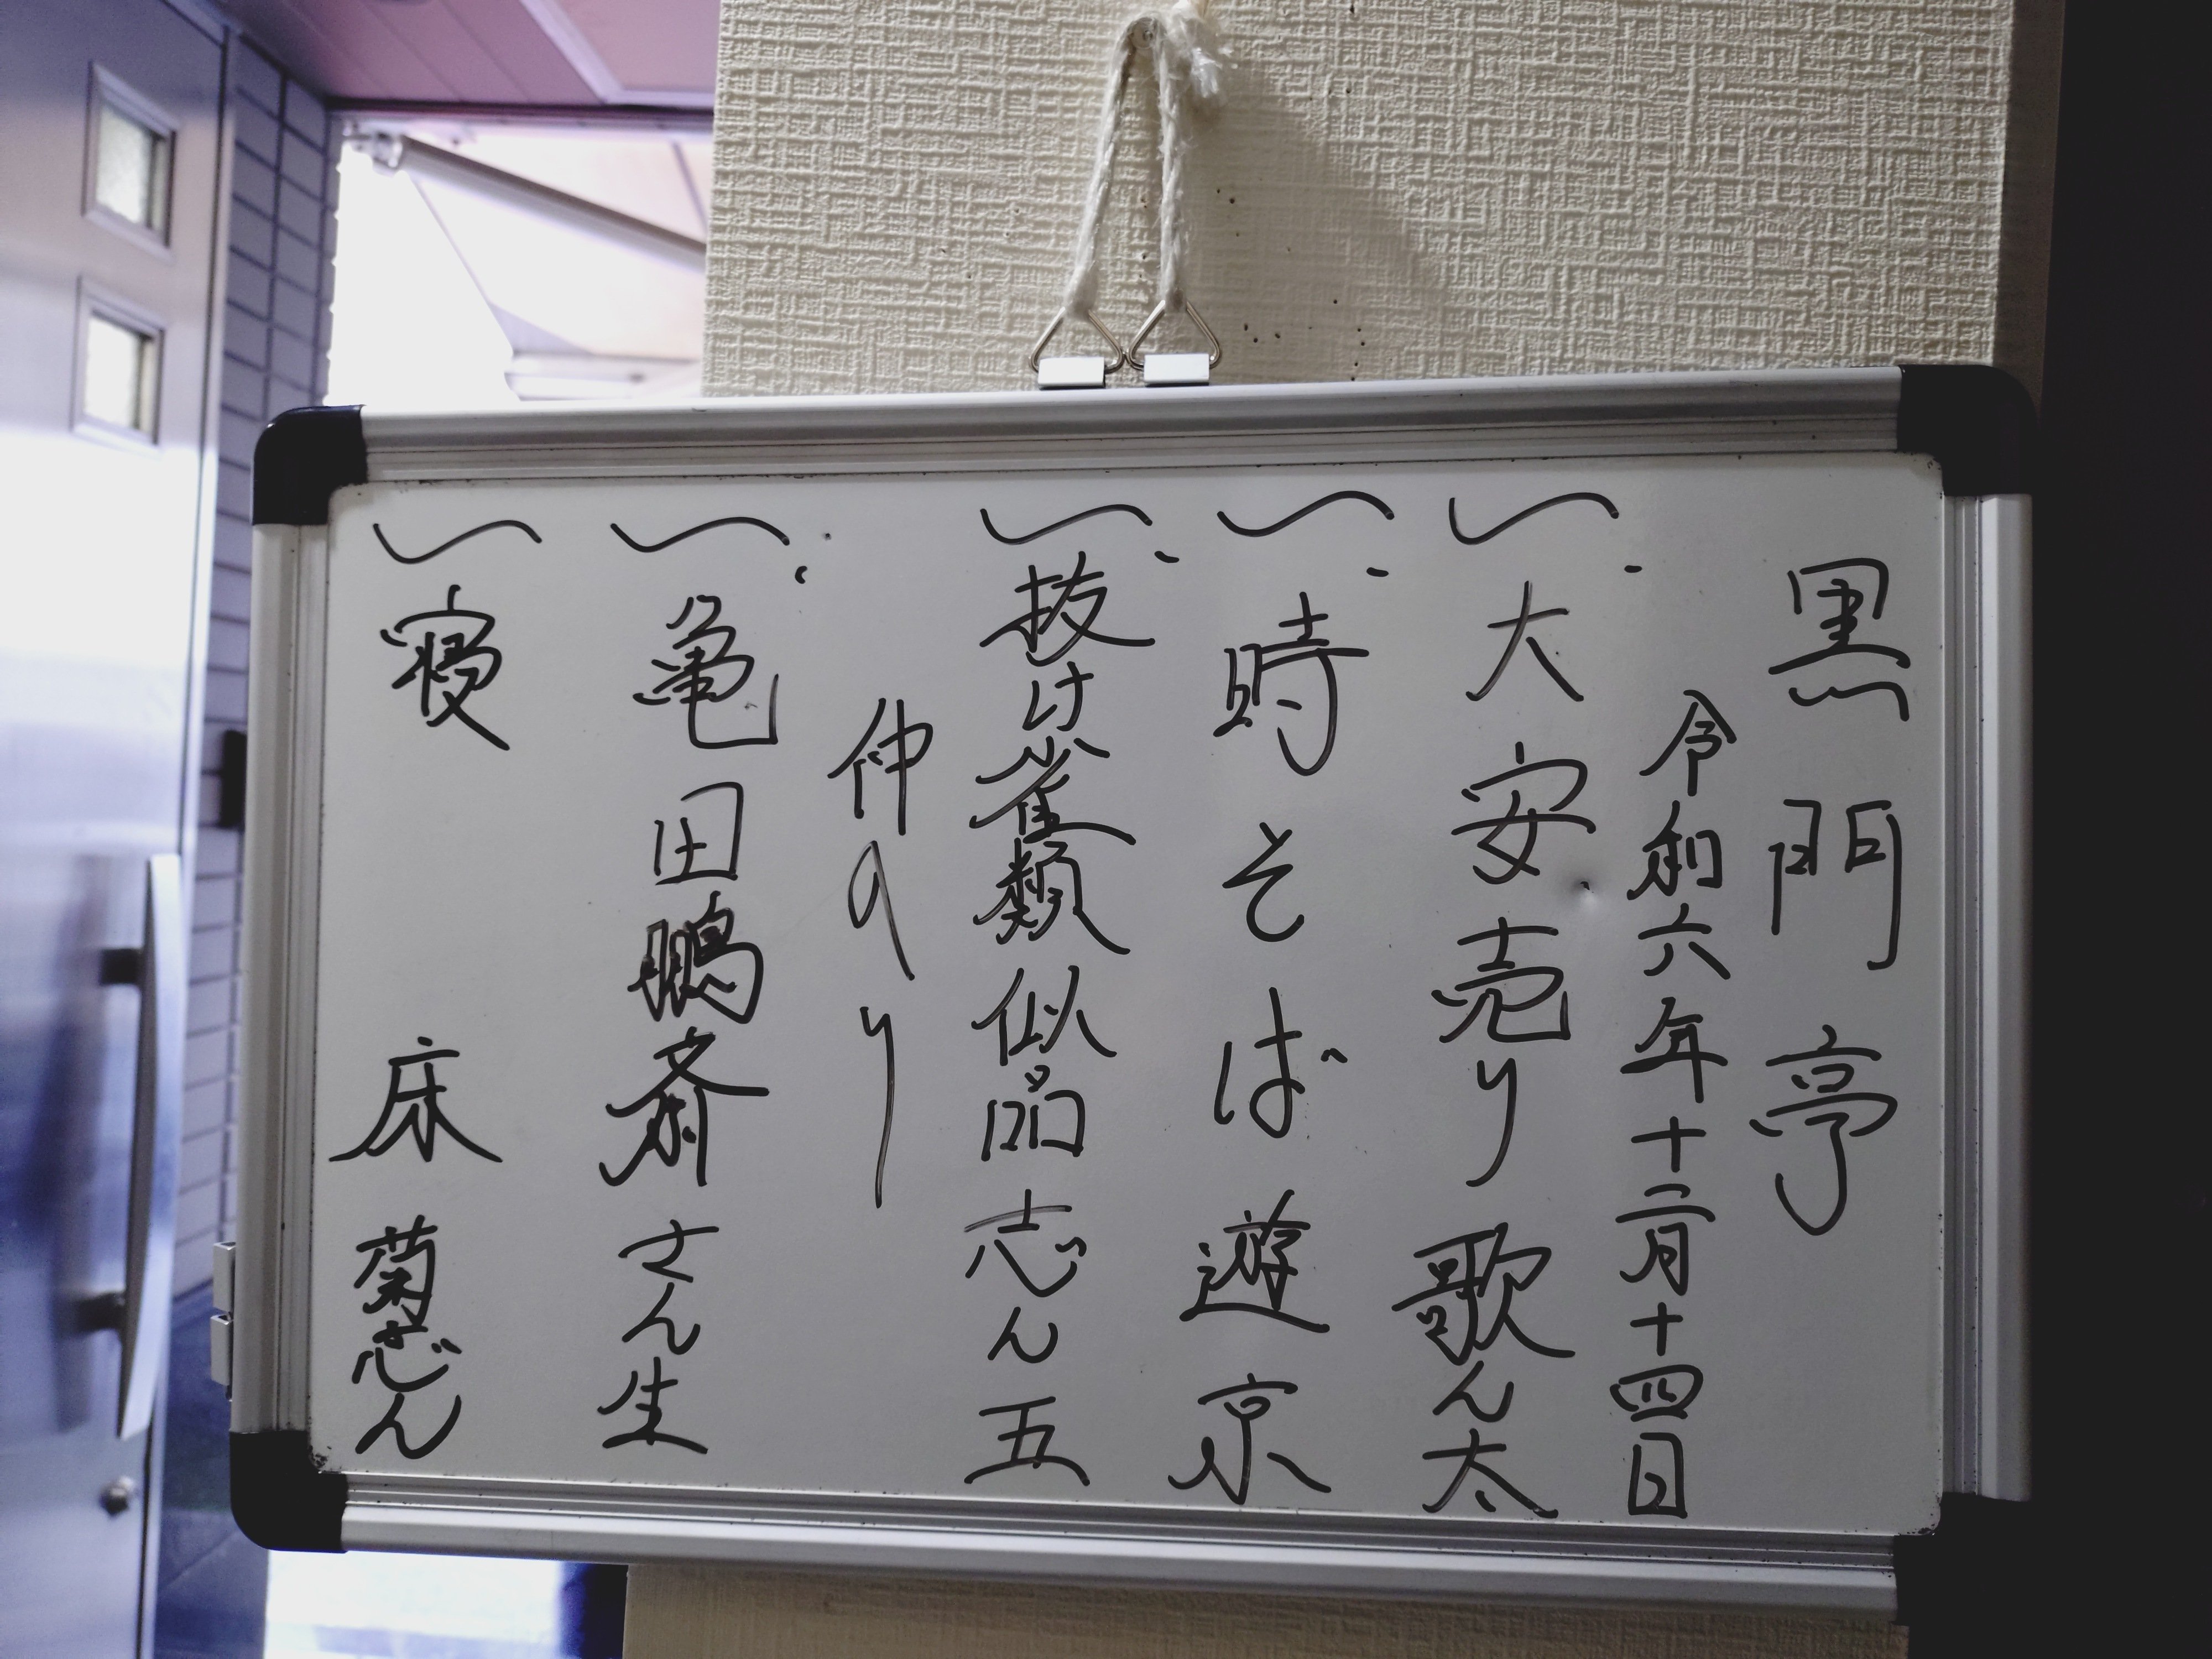 黒門亭
令和六年十二月十四日
一、大安売り 歌ん太
一、時そば 遊京
一、抜け雀類似品 志ん五
仲のり
一、亀田鵬斎 さん生
一、寝床 菊志ん